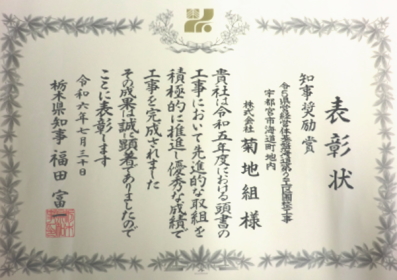 表彰状
知事奨励賞
宇都宮市海道町地内
株式会社 菊地組 様
貴社は令和五年度における頭書の
工事において先進的な取組を
積極的に推進し優秀な成績で
工事を完成されました
その成果は誠に顕著でありましたので
ここに表彰します
令和六年七月三十日
栃木県知事 福田富一